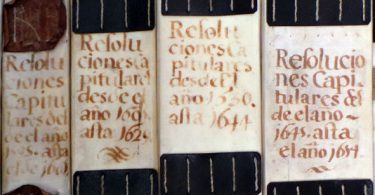 Resolu
ciones
Capitu
lares de
de el año
asta el año
Resolu
ciones Ca
pitulares
desde el
año
asta 162
Resolu
ciones Ca
pitulares
desde el
año
asta 1644
Resolucio
nes Capi
tulares des
de el ano
1645. asta
el año